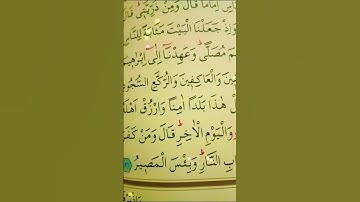 لِلنَّاسِ اِمَامًا قَالَ وَمِنْ ذُرِّيَّتٖى قَالَ
وَاِذْ جَعَلْنَا الْبَيْتَ مَثَابَةً لِلنَّاسِ
مُصَلًّى وَعَهِدْنَٓا اِلٰٓى اِبْرٰهٖيمَ
وَالْعَاكِفٖينَ وَالرُّكَّعِ السُّجُودِ
هٰذَا بَلَدًا اٰمِنًا وَارْزُقْ اَهْلَهُ
وَالْيَوْمِ الْاٰخِرِ قَالَ وَمَنْ كَفَرَ
النَّارِ وَبِئْسَ الْمَصٖيرُ